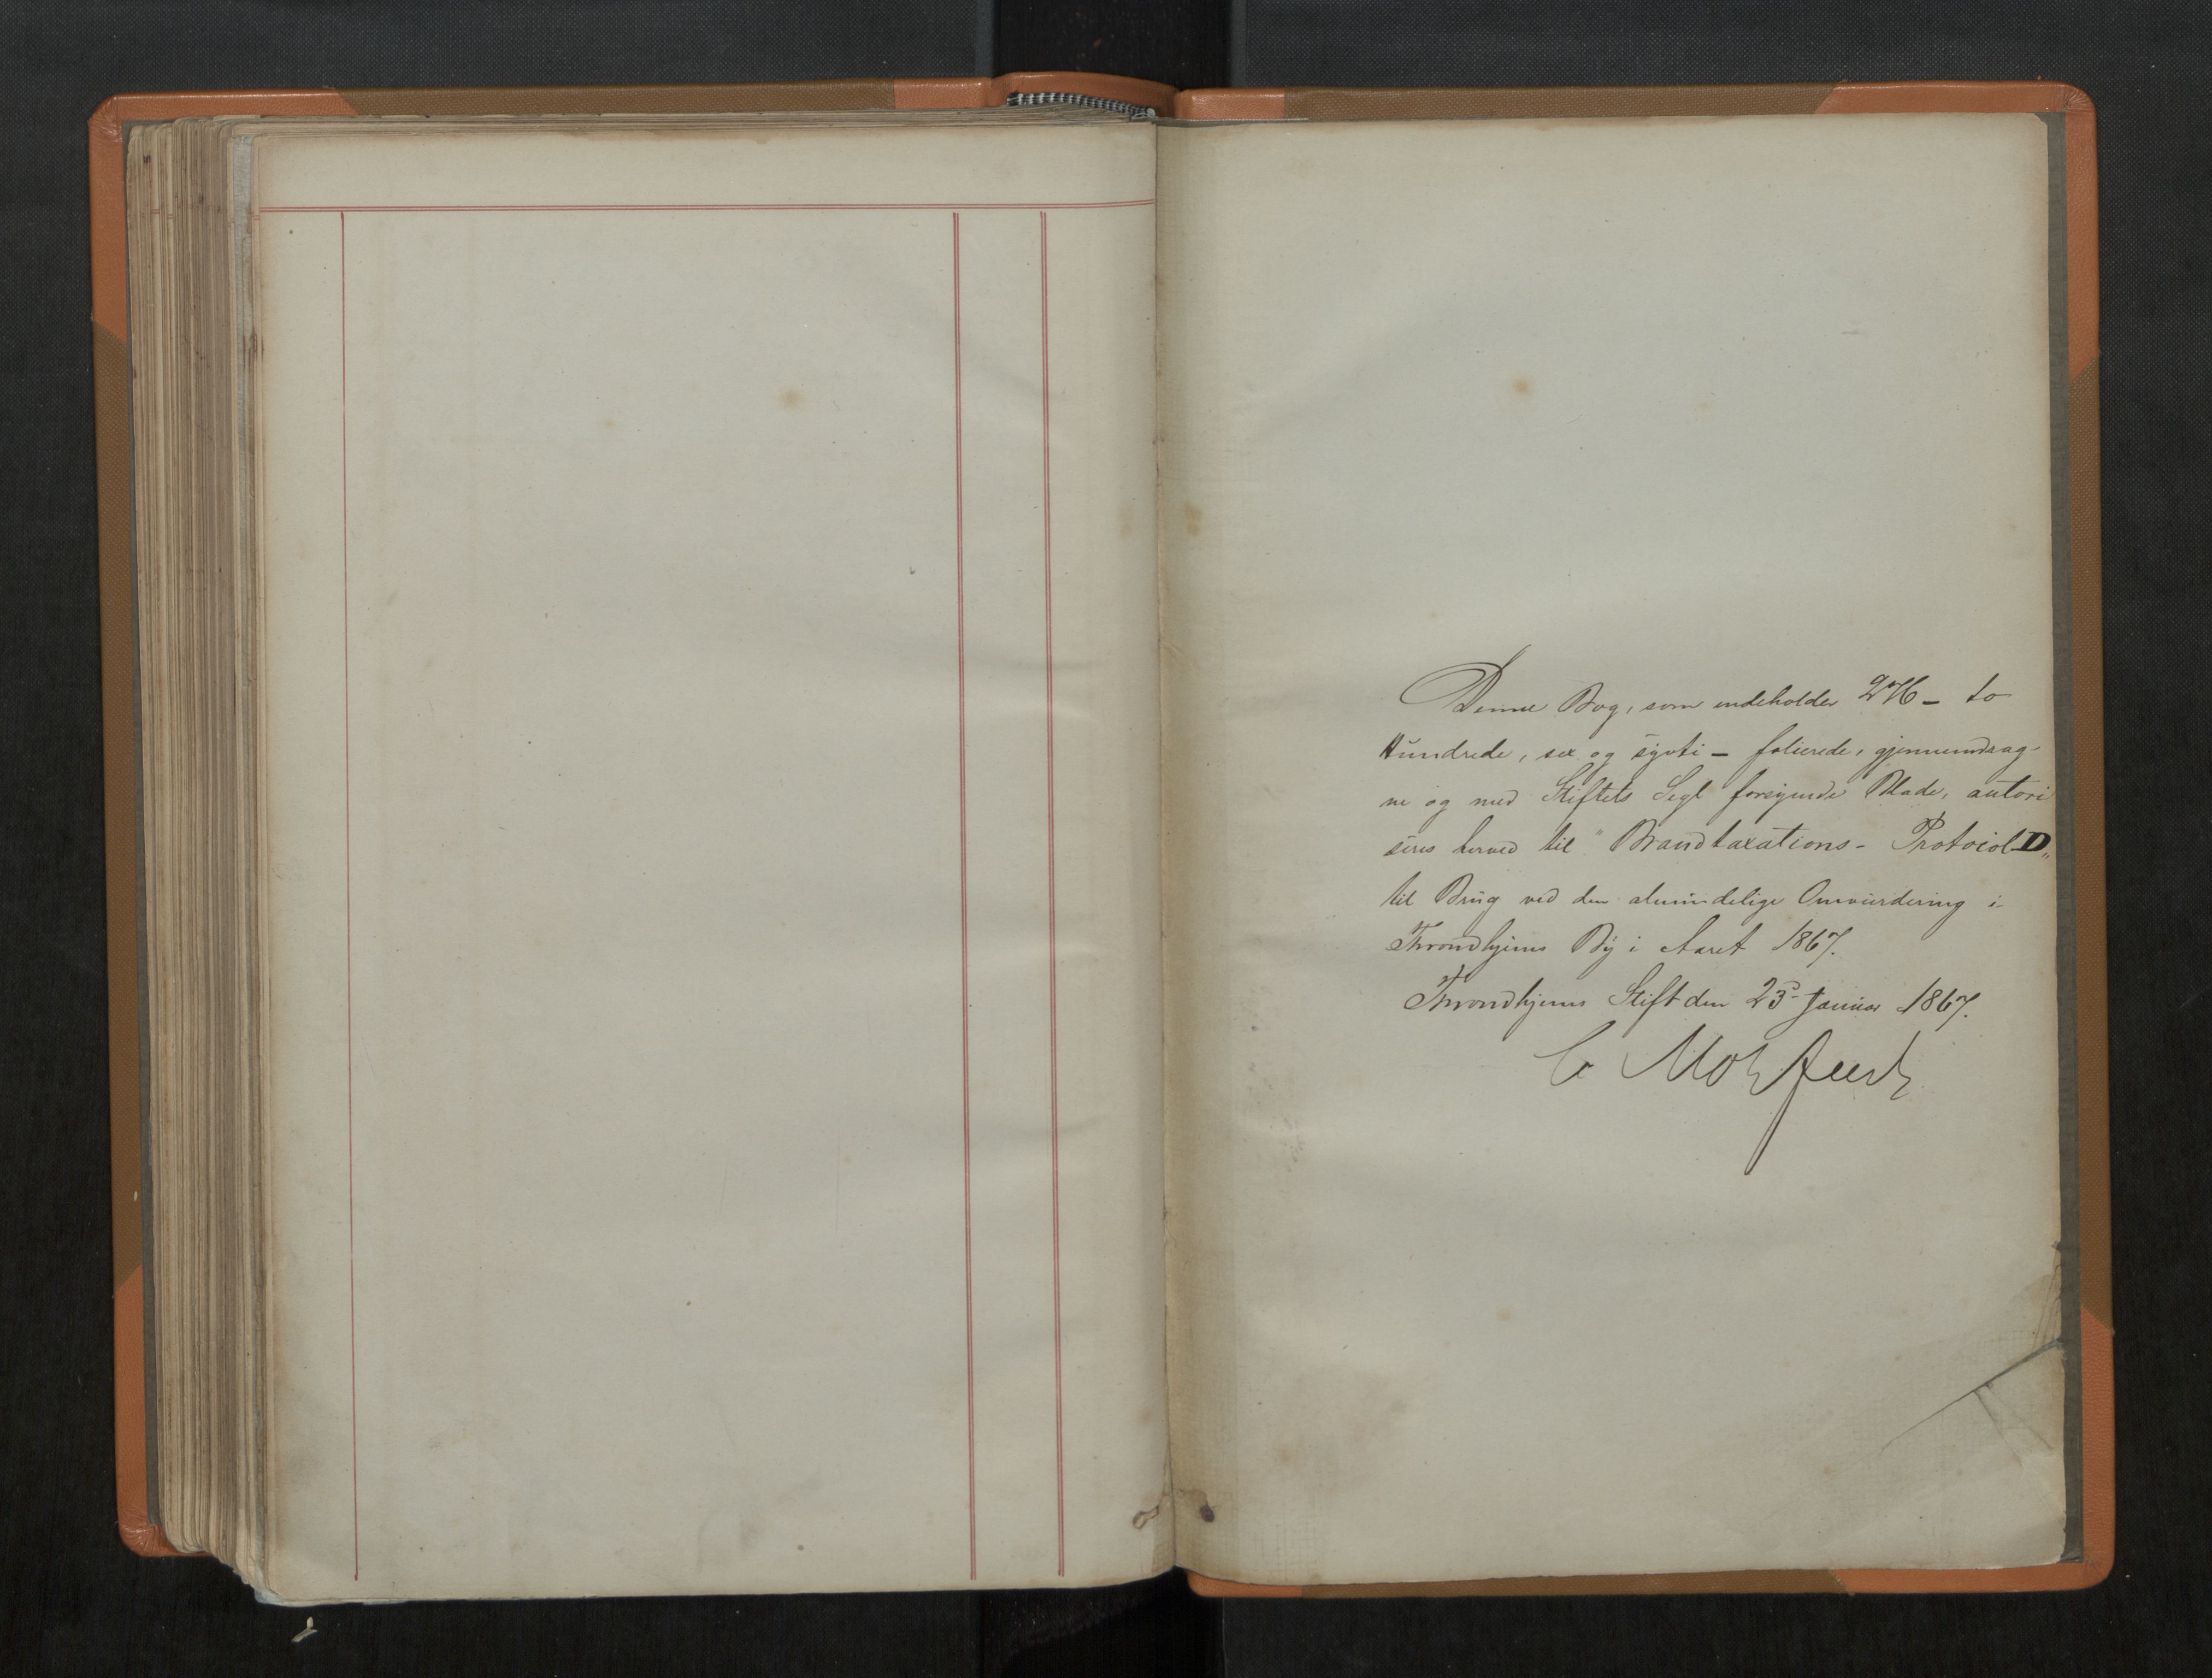 Denne Bog, som indeholder 276 - to
Hundrede, sex og sÿvti - folierede, gjennemdrag-
ne og med Stiftets Segl forsynede Blade, autori
seres herved til "Brandtaxations- Protocol D„
til Brŭg ved den almindelige Omvŭrdering i
Throndhjems Bÿ i Aaret 1867.
Throndhjems Stift den 23 Januar 1867.
C Motzfeldt